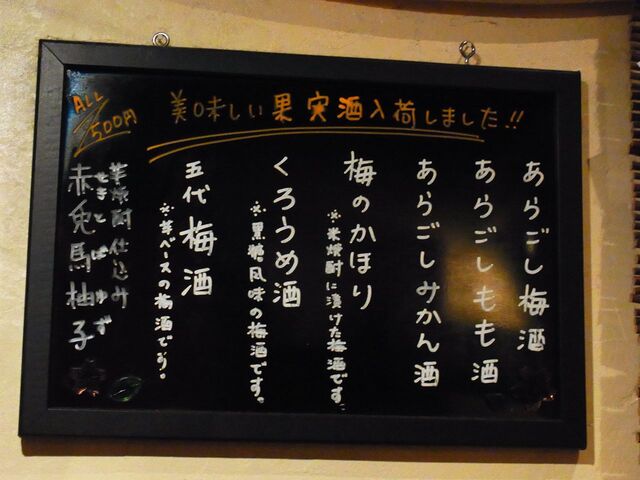 美味しい果実酒入荷しました!!
ALL
500円
あらごし梅酒
あらごしもも酒
あらごしみかん酒
梅のかほり
※米焼酎に漬けた梅酒です
くろうめ酒
※黒糖風味の梅酒です。
五代梅酒
※芋ベースの梅酒です。
芋焼酎仕込み
せきとばゆず
赤兎馬柚子